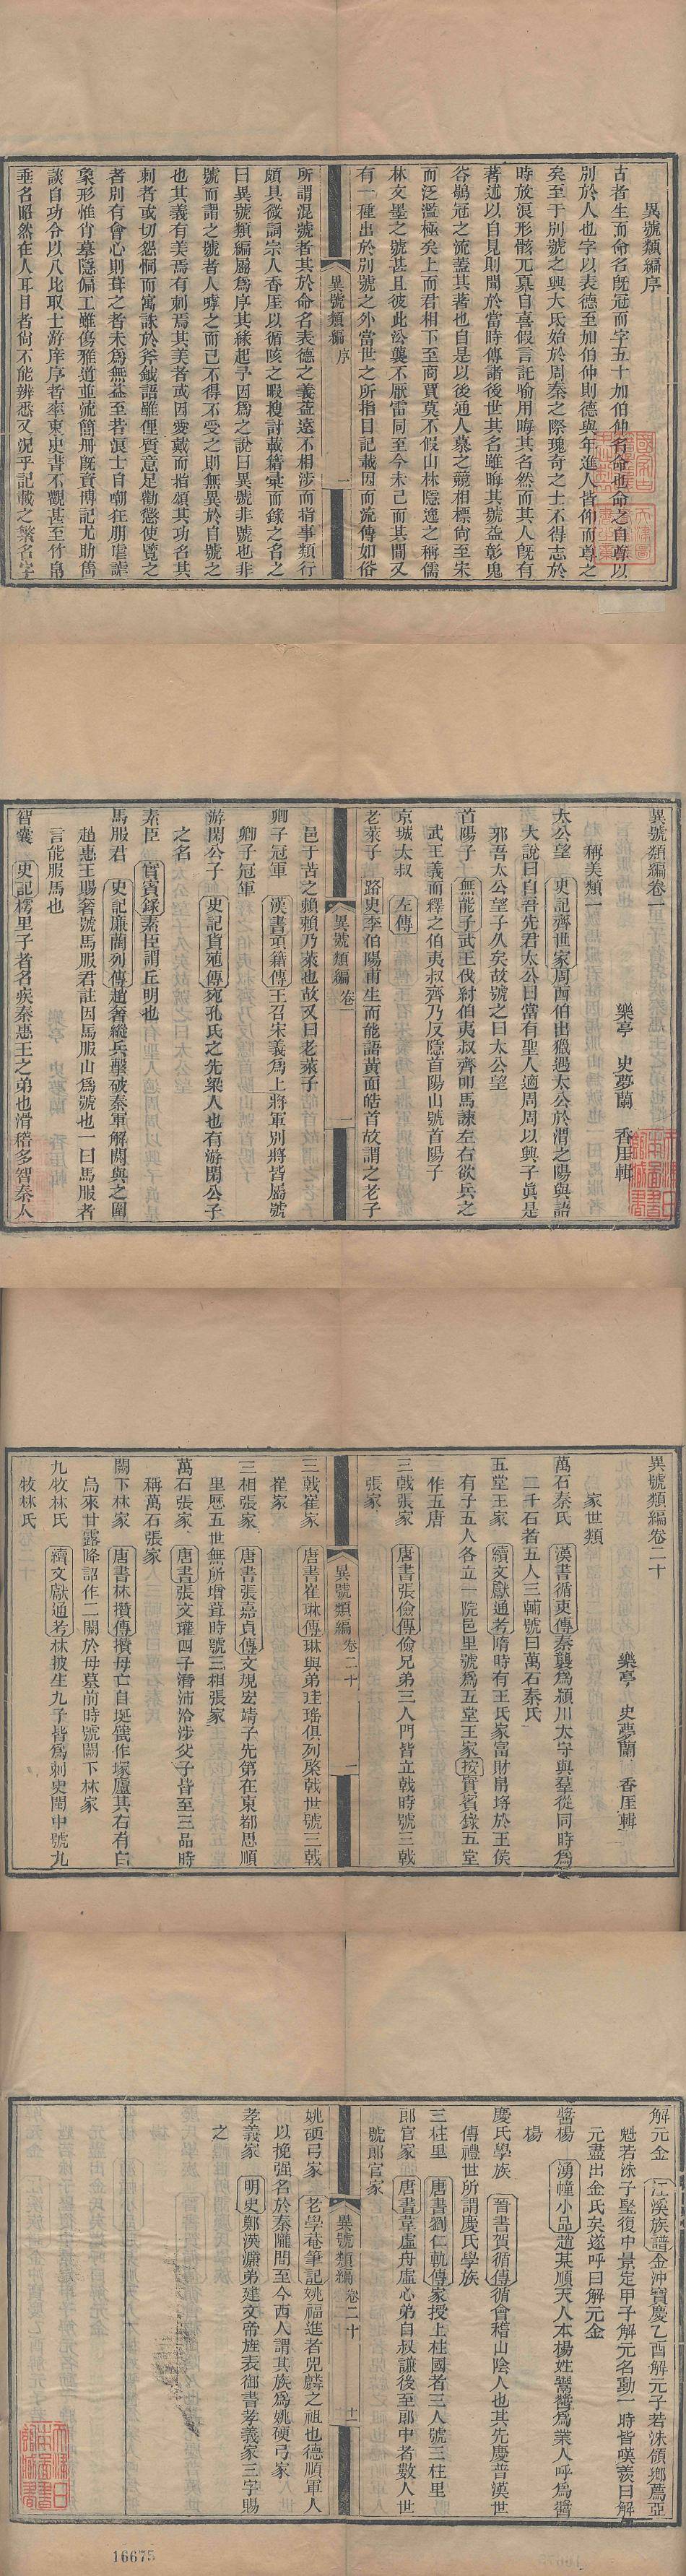 異號類編序
古者生而命名既冠而字五十加伯仲名命也命之自尊以
別於人也字以表德至加伯仲則德與年進人皆仰而尊之
矣至于別號之興大氐始於周秦之際瑰奇之士不得志於
時放浪形骸兀臬自喜假言託喻用晦其名然而其人既有
著述以自見則聞於當時傳諸後世其名雖晦其號益彰鬼
谷鶡冠之流蓋其著也自是以後通人慕之競相標尚至宋
而泛濫極矣上而君相下至商賈莫不假山林隱逸之稱儒
林文墨之號甚且彼此沿襲不厭雷同至今未已而其間又
有一種出於別號之外當世之所指目記載因而流傳如俗
異號類編 序 一
所謂混號者其於命名表德之義益遠不相涉而指事類行
頗具微詞宗人香厓以循陔之暇搜討載籍彙而錄之名之
曰異號類編屬為序其緣起予因為之說曰異號非號也非
號而謂之號者人嘑之而已不得不受之則無異於自號之
也其義有美焉有刺焉其美者或因愛戴而指頌其功名其
刺者或切怨恫而寓誅於斧鉞語雖俚質意足勸懲使覽之
者別有會心則葺之者未為無益至若浪士自嘲狂朋虐謔
象形惟肖摹隱偏工雖傷雅道並流簡冊既資博記尤助儁
談自功令以八比取士游庠序者率東史書不觀甚至竹帛
垂名昭然在人耳目者尚不能辨悉又況乎記載之繁名字
異號類編卷一
樂亭 史夢蘭 香厓輯
稱美類一
太公望 史記齊世家周西伯出獵遇太公於渭之陽與語
大說曰自吾先君太公曰當有聖人適周周以興子真是
邪吾太公望子久矣故號之曰太公望
首陽子 無能子武王伐紂伯夷叔齊叩馬諫左右欲兵之
武王義而釋之伯夷叔齊乃反隱首陽山號首陽子
京城太叔 左傳
老萊子 路史李伯陽甫生而能語黃面皓首故謂之老子
異號類編 卷一 一
邑于苦之賴賴乃萊也故又曰老萊子
卿子冠軍 漢書項籍傳王召宋義為上將軍別將皆屬號
卿子冠軍
游閑公子 史記貨殖傳宛孔氏之先梁人也有游閑公子
之名
素臣 實賓錄素臣謂丘明也
馬服君 史記廉藺列傳趙奢縱兵擊破秦軍解閼與之圍
趙惠王賜奢號馬服君註因馬服山為號也一曰馬服者
言能服馬也
智囊 史記樗里子者名疾秦惠王之弟也滑稽多智秦人
異號類編卷二十
樂亭 史夢蘭 香厓輯
家世類
萬石秦氏 漢書循吏傳秦襲為潁川太守與羣從同時為
二千石者五人三輔號曰萬石秦氏
五堂王家 續文獻通考隋時有王氏家富財帛埒於王侯
有子五人各立一院邑里號為五堂王家按實賓錄五堂
作五唐
三戟張家 唐書張儉傳儉兄弟三人門皆立戟時號三戟
張家
異號類編 卷二十 一
三戟崔家 唐書崔琳傳琳與弟珪瑤俱列棨戟世號三戟
崔家
三相張家 唐書張嘉貞傳文規宏靖子先第在東都思順
里歷五世無所增葺時號三相張家
萬石張家 唐書張文瓘四子潛沛洽涉父子皆至三品時
稱萬石張家
闕下林家 唐書林攢傳攢母亡自埏甓作塚廬其右有白
烏來甘露降詔作二闕於母墓前時號闕下林家
九牧林氏 續文獻通考林披生九子皆為刺史閩中號九
牧林氏
解元金 江溪族譜金沖寶慶乙酉解元子若洙領鄉薦亞
魁若洙子堅復中景定甲子解元名動一時皆嘆羨曰解
元盡出金氏矣遂呼曰解元金
醬楊 湧幢小品趙某順天人本楊姓鬻醬為業人呼為醬
楊
慶氏學族 晉書賀循傳循會稽山陰人也其先慶普漢世
傳禮世所謂慶氏學族
三柱里 唐書劉仁軌傳家授上柱國者三人號三柱里
郎官家 唐書韋虛舟虛心弟自叔謙後至郎中者數人世
號郎官家
異號類編 卷二十 十一
姚硬弓家 老學菴筆記姚福進者兕麟之祖也德順軍人
以挽强名於秦隴間至今西人謂其族為姚硬弓家
孝義家 明史鄭漢濂弟建文帝旌表御書孝義家三字賜
之
16675